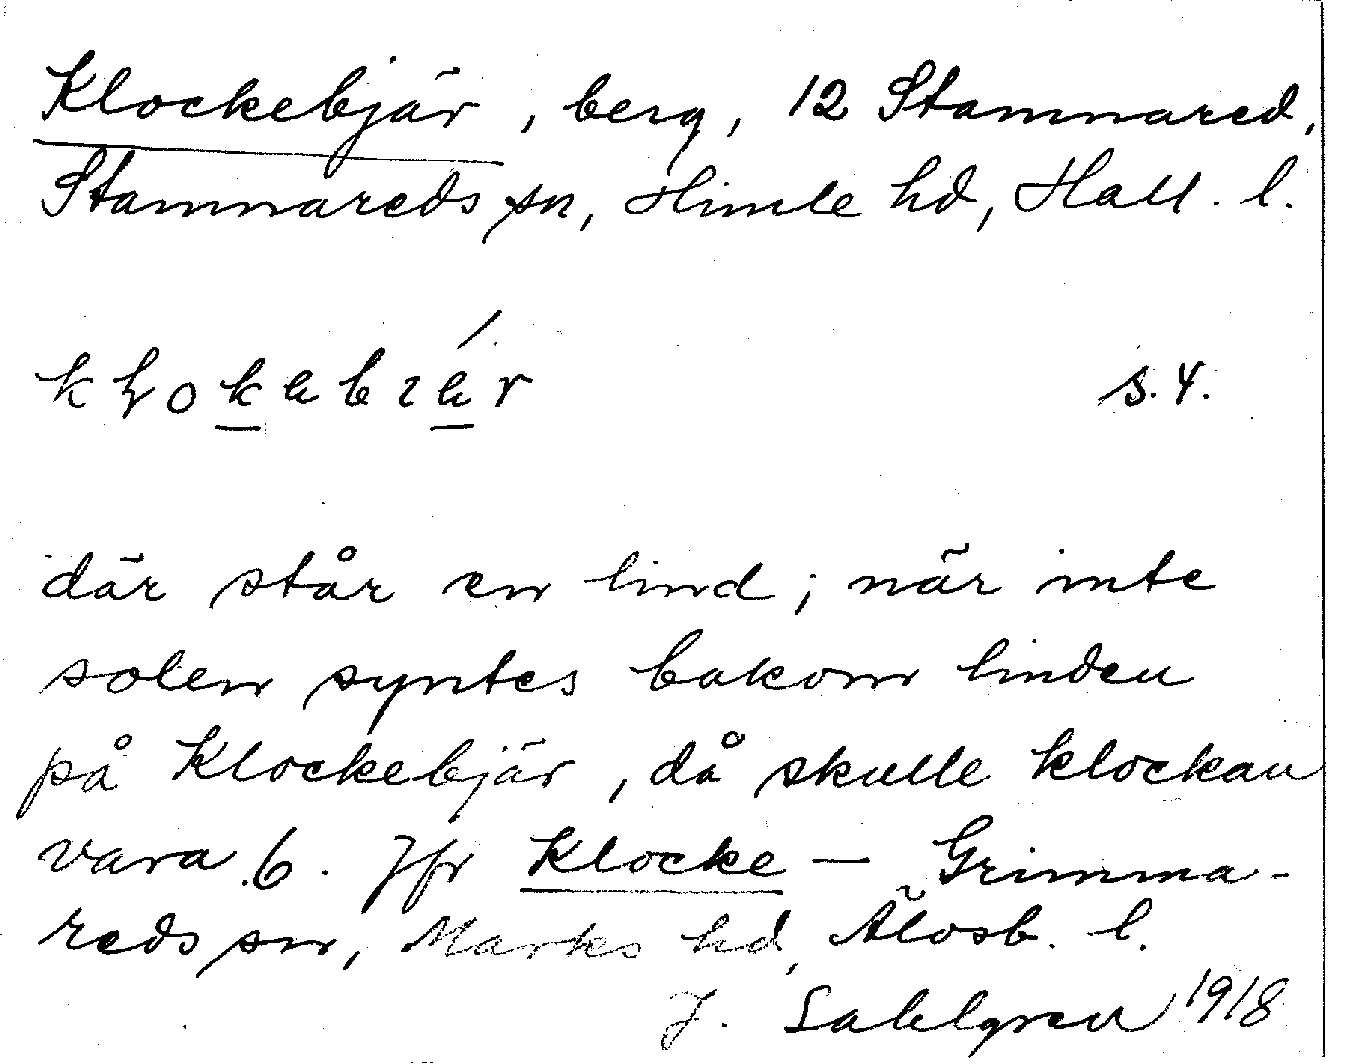 Klockebjär, berg, 12 Stamnared,
Stamnareds sn, Himle hd, Hall. l.
s. 4.
där står en lind; när inte
solen syntes bakom linden
på Klockebjär, då skulle klockan
vara 6. Jfr Klocke – Grimma-
reds sn, Marks hd, Älvsb. l.
J. Sahlgren 1918